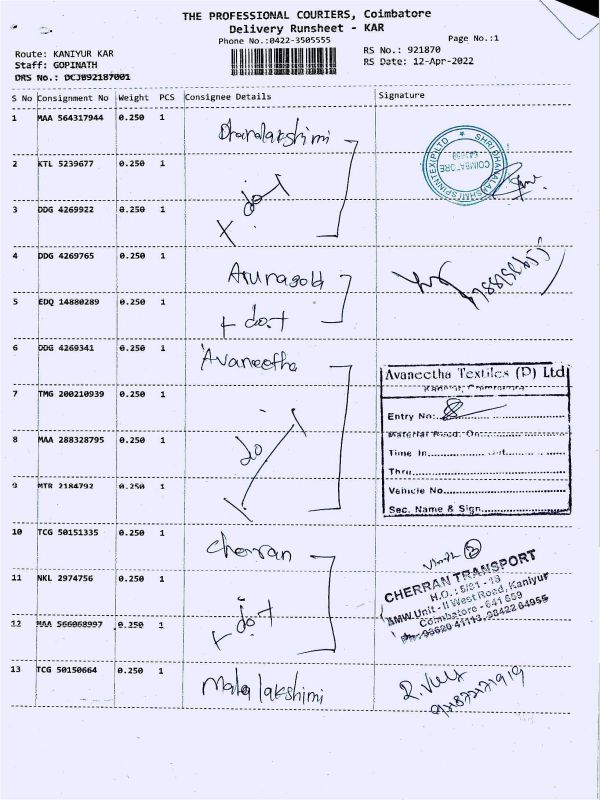 THE PROFESSIONAL COURIERS, Coimbatore
Delivery Runsheet - KAR
Phone No.:0422-3505555
Page No.:1
Route: KANIYUR KAR
RS No.: 921870
Staff: GOPINATH
RS Date: 12-Apr-2022
DRS No.: DCJ892187001
S No Consignment No Weight PCS Consignee Details Signature
1 MAA 564317944 0.250 1 Dhanalakshimi
2 KTL 5239677 0.250 1 do
3 DDG 4269922 0.250 1
SHRI DHANALAKSHMI SPINNTEX (P) LTD
COIMBATORE
4 DDG 4269765 0.250 1 Arunagold
5 EDQ 14880289 0.250 1 do
6 DDG 4269341 0.250 1 Avaneetha
7 TMG 200210939 0.250 1
8 MAA 288328795 0.250 1 do
9 MTR 2184792 0.250 1
Avaneetha Textiles (P) Ltd
Entry No:
Material Recd. On:
Time In
Thru
Vehicle No
Sec. Name & Sign
10 TCG 50151335 0.250 1 Cherran
11 NKL 2974756 0.250 1 do
12 MAA 566068997 0.250 1
CHERRAN TRANSPORT
H.O. : 5/81 - 13
AMW.Unit - II West Road, Kaniyur
Coimbatore - 641 659
13 TCG 50150664 0.250 1 Mala lakshimi